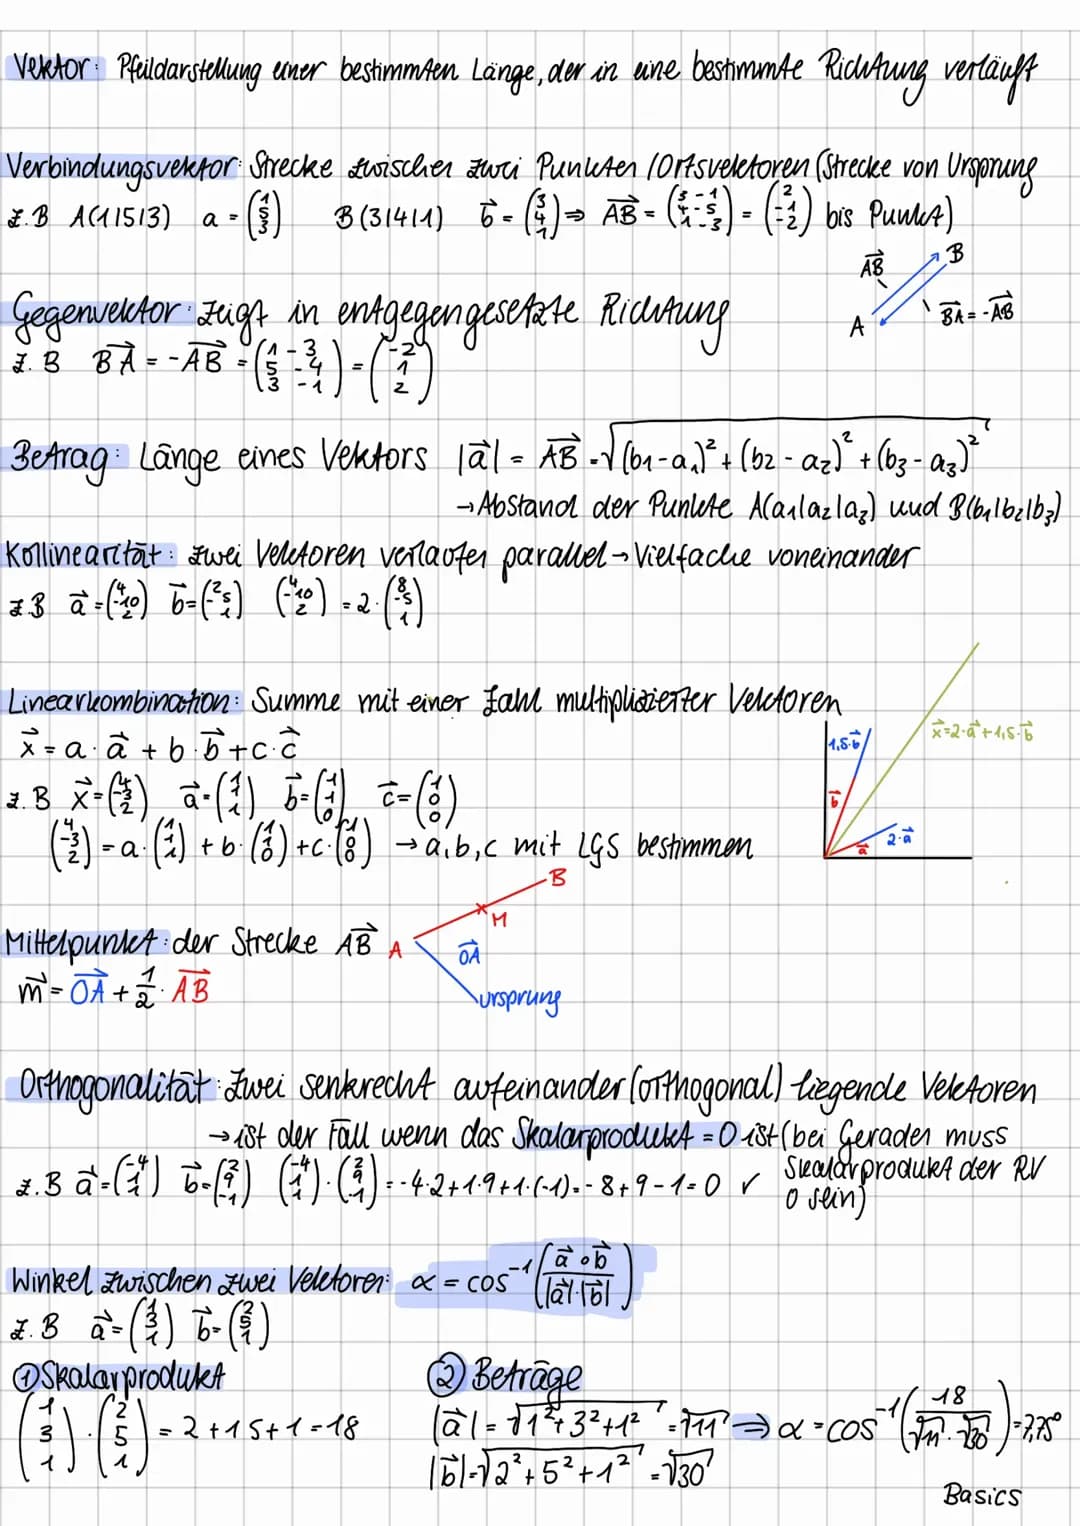 Vektor: Pfeildarstellung einer bestimmten Länge, der in eine bestimmte Richtung verläuft
Verbindungsvektor: Strecke zwischen zwei Punkten / Ortsvektoren (Strecke von Ursprung
z.B A(1|5|3) a = (1 5 3) B(3|4|1) b⃗ = (3 4 1) ⇒ AB⃗ = (3-1 4-5 1-3) = (2 -1 -2) bis Punkt)
AB⃗ B
A BA⃗ = -AB⃗
Gegenvektor: zeigt in entgegengesetzte Richtung
z.B BA⃗ = -AB⃗ = (1-3 5-4 3-1) = (-2 1 2)
Betrag: Länge eines Vektors |a⃗| = AB⃗ = √(b1-a1)² + (b2-a2)² + (b3-a3)²
→ Abstand der Punkte A(a1|a2|a3) und B(b1|b2|b3)
Kollinearität: zwei Vektoren verlaufen parallel → Vielfache voneinander
z.B a⃗ = (4 -10 2) b⃗ = (2 -5 1) (4 -10 2) = 2 · (8 -5 1)
Linearkombination: Summe mit einer Zahl multiplizierter Vektoren
x⃗ = a · a⃗ + b · b⃗ + c · c⃗
z.B x⃗ = (4 -3 2) a⃗ = (1 1 1) b⃗ = (1 1 0) c⃗ = (1 0 0)
(4 -3 2) = a · (1 1 1) + b · (1 1 0) + c · (1 0 0) → a,b,c mit LGS bestimmen
1,5·b⃗ x⃗=2·a⃗+1,5·b⃗
b⃗
a⃗ 2·a⃗
Mittelpunkt: der Strecke AB⃗ A M B
m⃗ = OA⃗ + 1/2 · AB⃗
OA⃗
Ursprung
Orthogonalität: Zwei senkrecht aufeinander (orthogonal) liegende Vektoren
→ ist der Fall wenn das Skalarprodukt = 0 ist (bei Geraden muss
Skalarprodukt der RV
0 sein)
z.B a⃗ = (-4 1 1) b⃗ = (2 9 -1) (-4 1 1) · (2 9 -1) = -4·2+1·9+1·(-1) = -8+9-1=0 ✓
Winkel zwischen zwei Vektoren: α = cos⁻¹(a⃗ ∘ b⃗ / |a⃗|·|b⃗|)
z.B a⃗ = (1 3 1) b⃗ = (2 5 1)
① Skalarprodukt
(1 3 1) · (2 5 1) = 2+15+1=18
② Beträge
|a⃗| = √1²+3²+1² = √11 ⇒ α = cos⁻¹(18 / √11 · √30) = 7,75°
|b⃗| = √2²+5²+1² = √30
Basics